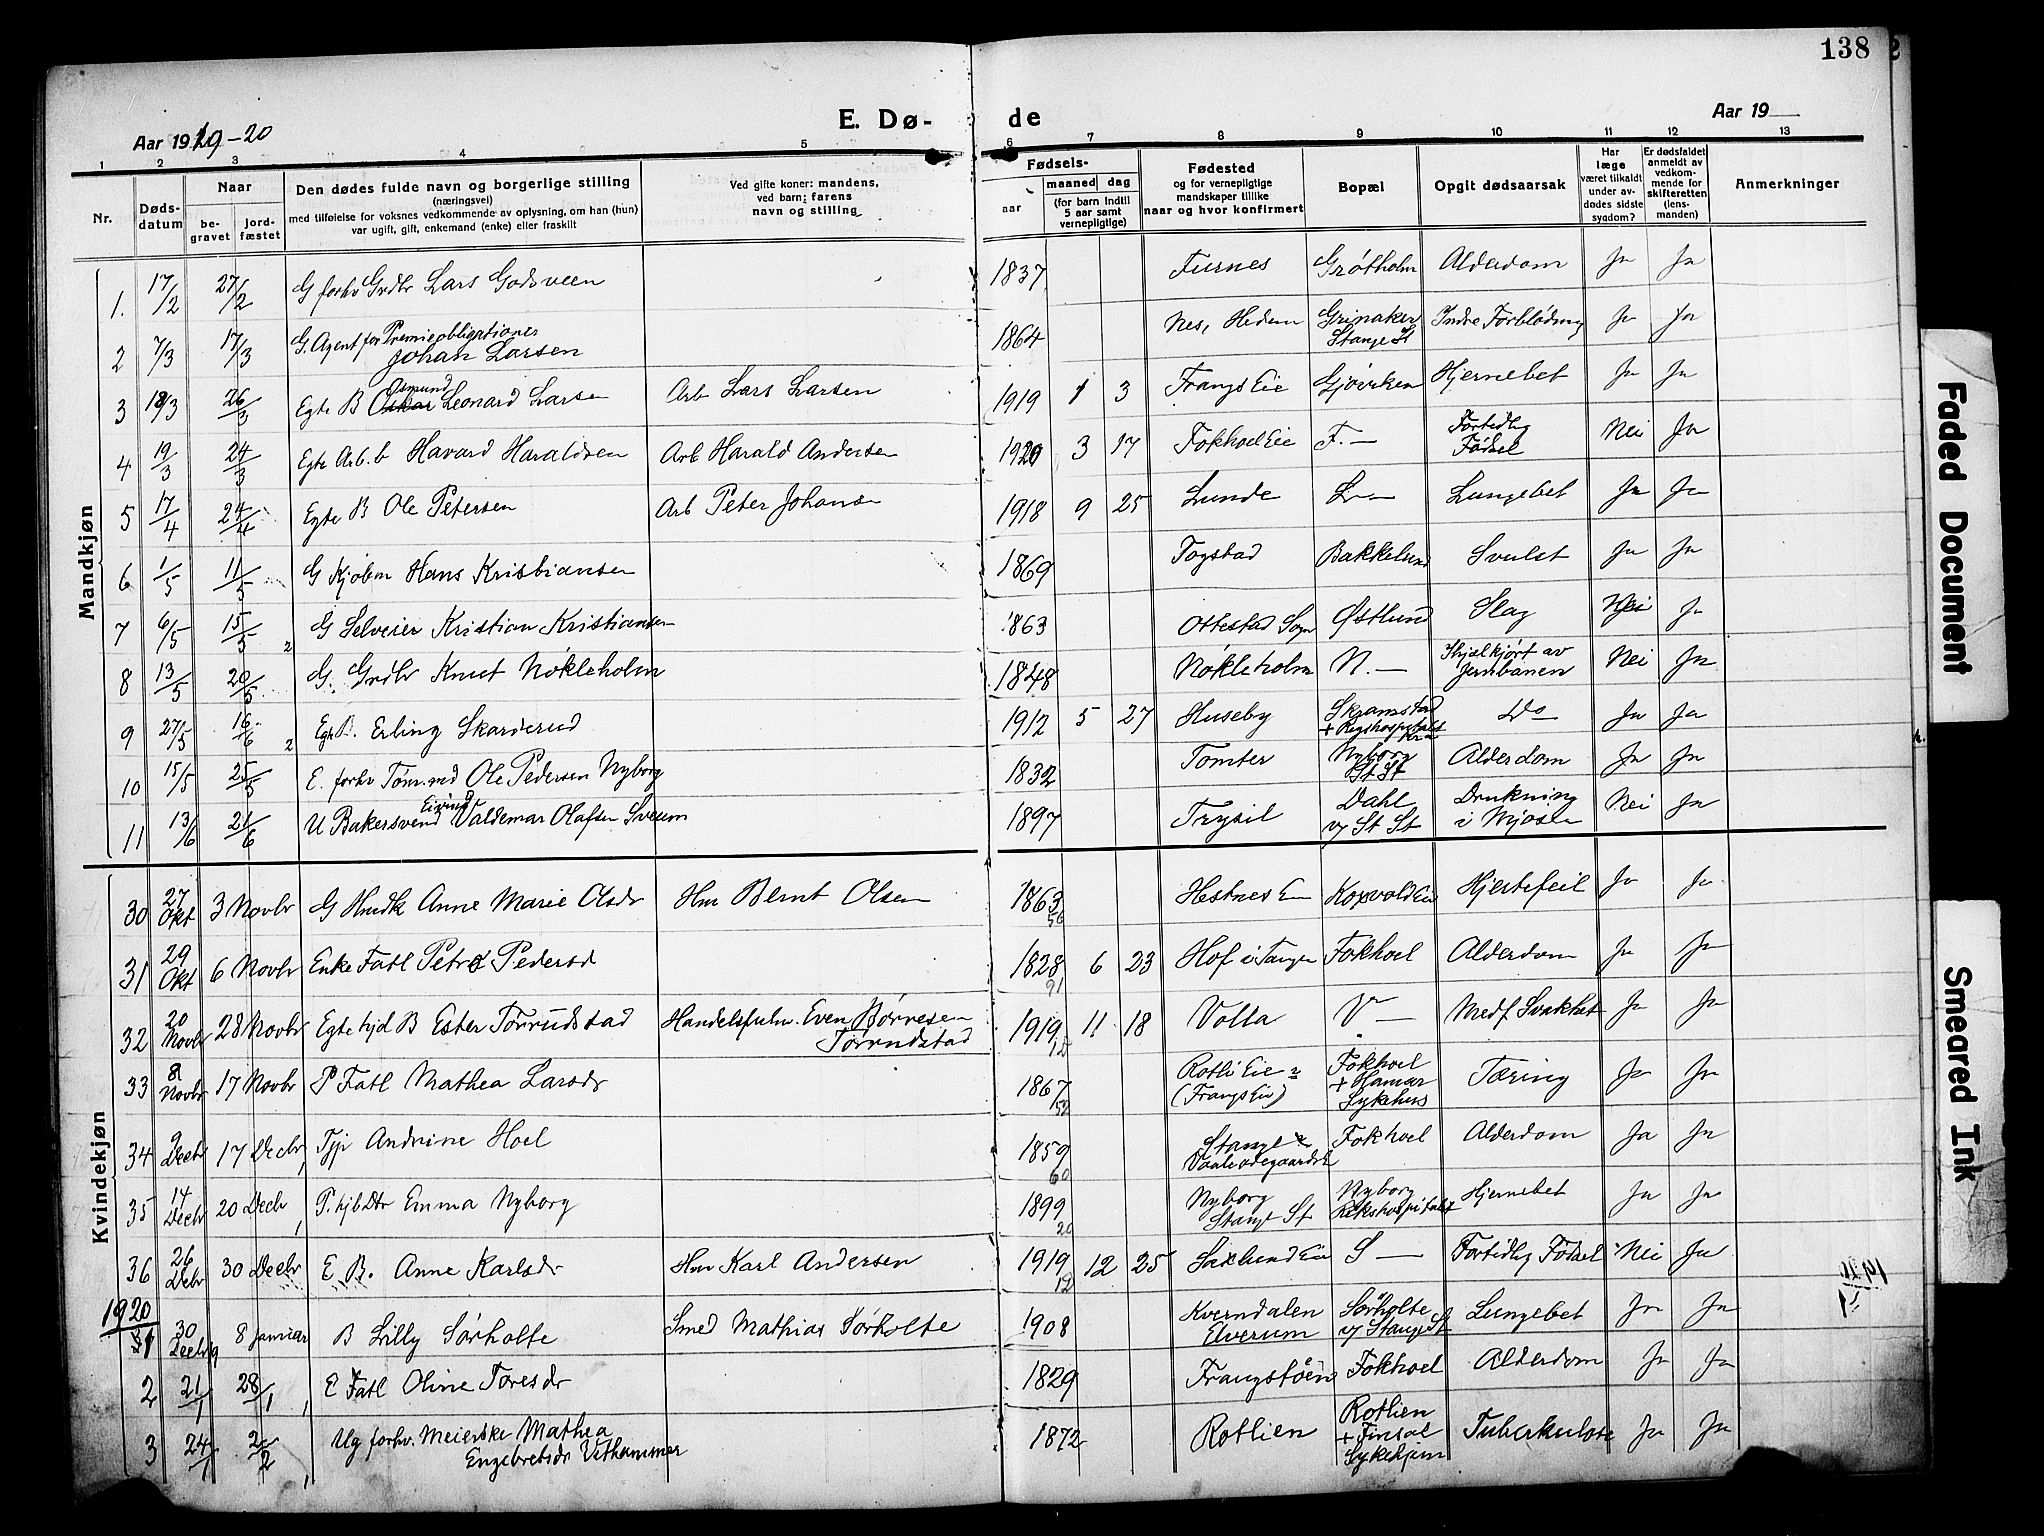 138
Aar 1919-20
E. Dø-
de
Aar 19
1 2 3 4 5 6 7 8 9 10 11 12 13
Nr.
Døds-
datum
Naar
be-
gravet
jord-
fæstet
Den dødes fulde navn og borgerlige stilling
(næringsvei)
med tilføielse for voksnes vedkommende av oplysning, om han (hun)
var ugift, gift, enkemand (enke) eller fraskilt
Ved gifte koner: mandens,
ved barn: farens
navn og stilling
Fødsels-
aar
maaned
dag
(for barn indtil
5 aar samt
vernepligtige)
Fødested
og for vernepligtige
mandskaper tillike
naar og hvor konfirmert
Bopæl
Opgit dødsaarsak
Har
læge
været tilkaldt
under av-
dødes sidste
sygdom?
Er dødsfaldet
anmeldt av
vedkom-
mende for
skifteretten
(lens-
manden)
Anmerkninger
Mandkjøn
1. 17/2 27/2 G forhv Grdbr Lars Godsveen 1837 Furnes Grøtholm Alderdom Ja Ja
2 7/3 17/3 G. Agent for Premieobligationer Johan Larsen 1864 Nes, Hedem Grinaker Stange St Indre Forblødning Ja Ja
3 18/3 26/3 Egte B Oskar Osmund Leonard Larsen Arb Lars Larsen 1919 1 3 Frangs Eie Gjøvicken Hjernebet Ja Ja
4 19/3 24/3 Egte Arb. b Havard Haraldsen Arb Harald Andersen 1920 3 17 Fokhoel Eie F. — Fortidlig Fødsel Nei Ja
5 17/4 24/4 Egte B Ole Petersen Arb Peter Johansen 1918 9 25 Lunde L — Lungebet Ja Ja
6 1/5 11/5 G Kjøbm Hans Kristiansen 1869 Togstad Bakkelund Svulst Ja Ja
7 6/5 15/5 2 G Selveier Kristian Kristiansen 1863 Ottestad Sogn Østlund Slag Nei Ja
8 13/5 20/5 G. Grdbr Knut Nøkleholm 1848 Nøkleholm N. — Ihjelkjørt av Jernbanen Nei Ja
9 27/5 16/6 2 Egte B. Erling Skarderud 1912 5 27 Huseby Skramstad + Rigshospitalet Kra Do Ja Ja
10 15/5 25/5 E. forhv Tøm.md Ole Pedersen Nyborg 1832 Tomter Nyborg St St Alderdom Ja Ja
11 13/6 21/6 U Bakersvend Eivind Valdemar Olafsen Sveum 1897 Trysil Dahl v/ St St Drukning i Mjøsen Nei Ja
Kvindekjøn
30 27 Okt 3 Novbr G Hmdk Anne Marie Olsdr Hm Bernt Olsen 1863 56 Hestnes Eie Korvald Eie Hjertefeil Ja Ja
31 29 Okt 6 Novbr Enke Fatl Petra Pedersd 1828 91 6 23 Hof i Tangen Fokhoel Alderdom Ja Ja
32 20 Novbr 28 Novbr Egte hjd B Ester Tørrudstad Handelsfulm. Even Børresen Tørrudstad 1919 12 11 18 Volla V — Medf Svakhet Ja Ja
33 8 Novbr 17 Novbr P Fatl Mathea Larsdr 1867 52 Rotli Eie (Frangs Eie) Fokhoel + Hamar Sykehus Tæring Ja Ja
34 9 Decbr 17 Decbr Tyj Andrine Hoel 1859 60 Stange Vaaleødegaards E Fokhoel Alderdom Ja Ja
35 14 Decbr 20 Decbr P. hjb Dtr Emma Nyborg 1899 20 Nyborg Stange St Nyborg Rikshospitalet Hjernebet Ja Ja
36 26 Debr 30 Decbr E. B. Anne Karlsdr Hm Karl Andersen 1919 12 12 25 Saxlund Eie S — Fortidlig Fødsel Nei Ja
1920
1 30 Decbr 19 8 Januar B Lilly Sørholte Smed Mathias Sørholte 1908 Kverndalen Elverum Sørholte v/ Stange St Lungebet Ja Ja
2 21/1 28/1 E Fatl Oline Toresdr 1829 Frangstøen Fokhoel Alderdom Ja Ja
3 24/1 2/2 Ug forhv. Meierske Mathea Engebretsdr Vethammer 1872 Rotlien Rotlien + Finsal Sykehjem Tuberkulose Ja Ja
Faded Document
Smeared Ink